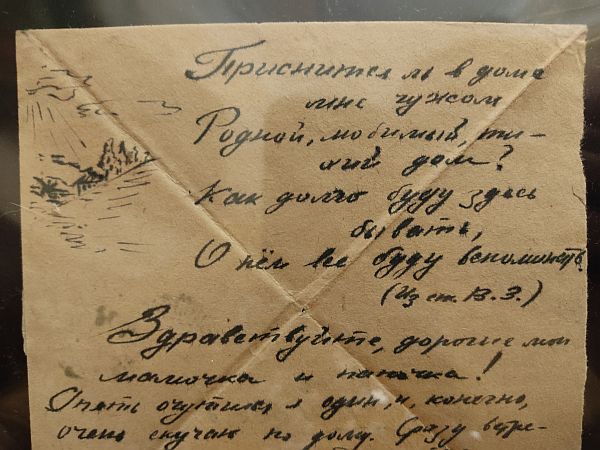 Приснится ль в доме
мне чужом
Родной, любимый, ти-
хий дом?
Как долго буду здесь
бывать,
О нём все буду вспоминать.
(Из ст. В. З.)
Здравствуйте, дорогие мои
мамочка и папочка!
Опять очутился я один, и, конечно,
очень скучаю по дому. Сразу встре-